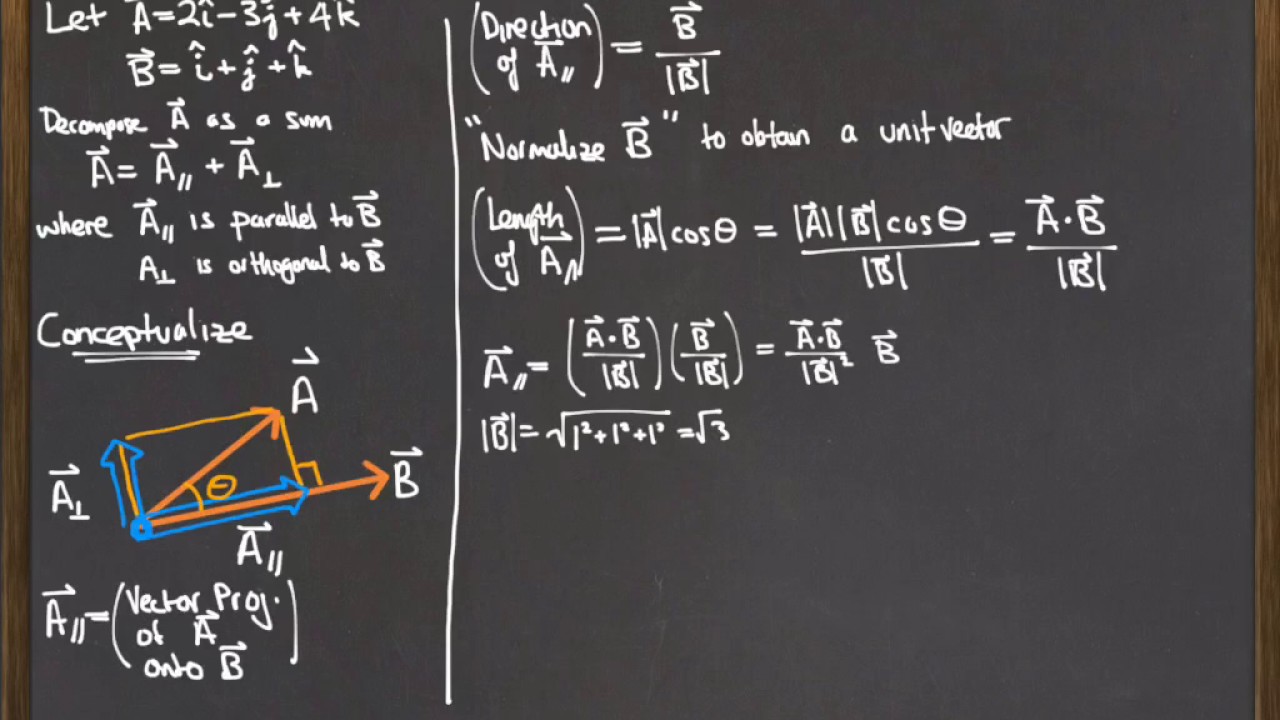 Let A⃗=2î-3ĵ+4k̂
B⃗=î+ĵ+k̂
Decompose A⃗ as a sum
A⃗=A⃗∥+A⃗⊥
where A⃗∥ is parallel to B⃗
A⊥ is orthogonal to B⃗
Conceptualize
A⃗
θ
B⃗
A⃗⊥
A⃗∥
A⃗∥=(Vector Proj. of A⃗ onto B⃗)
(Direction of A⃗∥) = B⃗/|B⃗|
"Normalize B⃗" to obtain a unit vector
(Length of A⃗∥) = |A⃗|cosθ = |A⃗||B⃗|cosθ/|B⃗| = A⃗·B⃗/|B⃗|
A⃗∥=(A⃗·B⃗/|B⃗|)(B⃗/|B⃗|) = A⃗·B⃗/|B⃗|² B⃗
|B⃗|=√(1²+1²+1²)=√3